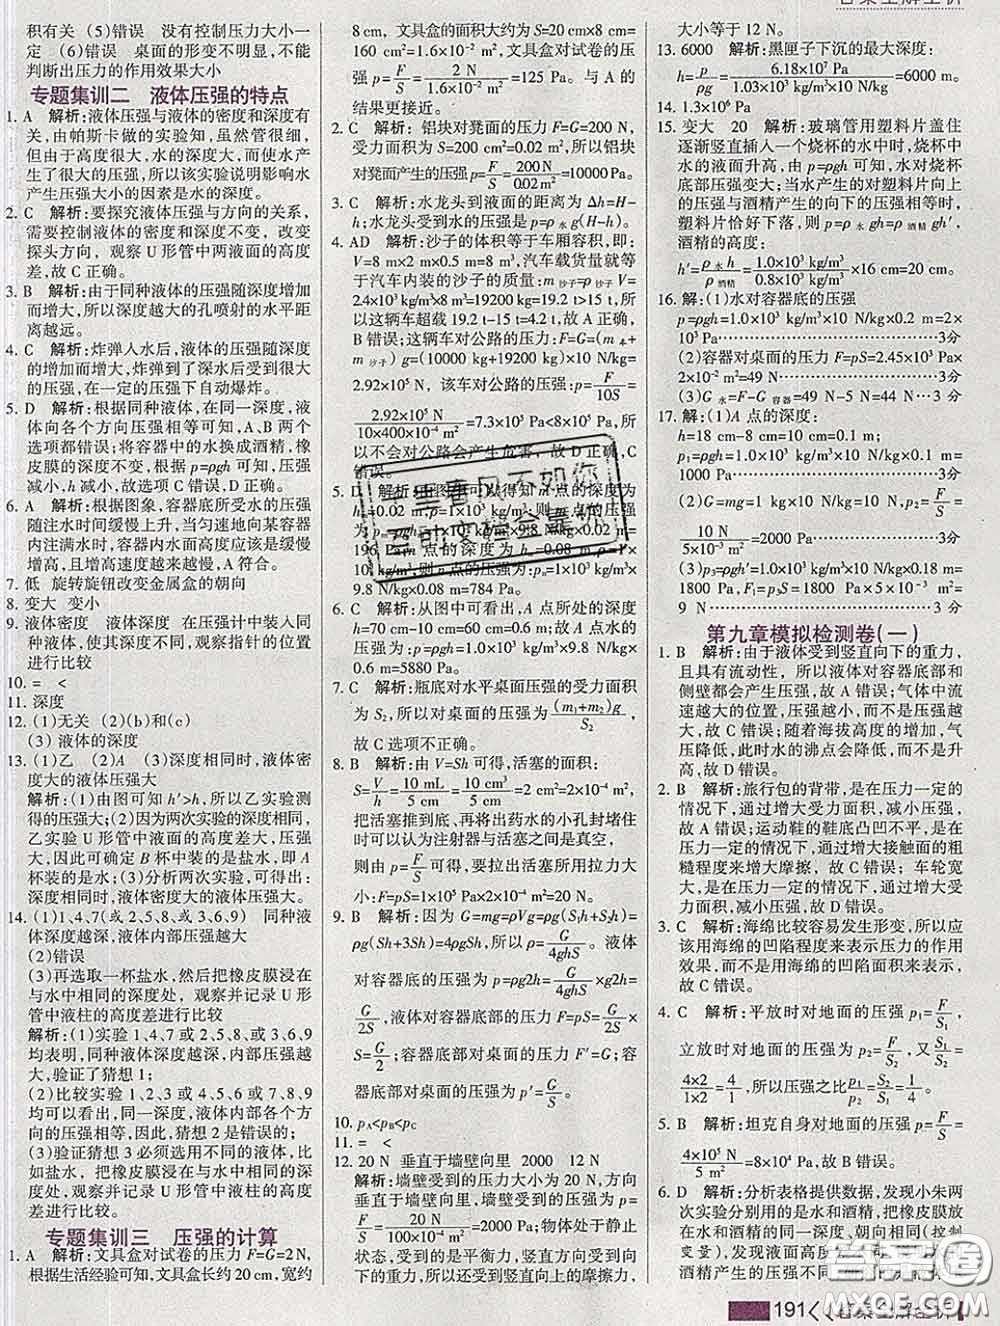 答案全解全析
积有关 (5)错误 没有控制压力大小一
定 (6)错误 桌面的形变不明显,不能
判断出压力的作用效果大小
专题集训二 液体压强的特点
1. A 解析:液体压强与液体的密度和深度有
关,由帕斯卡做的实验知,虽然管很细,但
由于高度很大,水的深度大,而使水产生
了很大的压强,所以该实验说明影响水
产生压强大小的因素是水的深度。
2. C 解析:要探究液体压强与方向的关系,
需要控制液体的密度和深度不变,改变
探头方向,观察 U 形管中两液面的高度
差,故 C 正确。
3. B 解析:由于同种液体压强随深度增加
而增大,所以深度越大的孔喷射的水平距
离越远。
4. C 解析:炸弹入水后,液体的压强随深度
的增加而增大,炸弹到了深水后受到很大
的压强,在一定的压强下自动爆炸。
5. D 解析:根据同种液体,在同一深度,液体
向各个方向压强相等可知,A、B 两个
选项都错误;将容器中的水换成酒精,橡
皮膜的深度不变,根据 p=ρgh 可知,液体
压强减小,h 减小,故选项 C 错误。
6. A 解析:根据图象,容器底所受水的压强
随注水时间缓慢上升,当匀速地向某容器
内注满水时,容器内水面高度应该是缓慢
增高,且增高速度越来越慢,A 符合。
7. 低 旋转旋钮改变金属盒的朝向
8. 变大 变小
9. 液体密度 液体深度 在压强计中装入同
种液体,使其深度不同,观察指针的位置
进行比较
10. = <
11. 深度
12. (1)无关 (2)(b)和(c)
(3) 液体的深度
13. (1)乙 (2)A (3)深度相同时,液体密
度大的液体压强大
解析:(1)由图可知 h′>h,所以乙实验测
得的压强大;(2)因为两次实验的深度相同,
乙实验 U 形管中液面的高度差大,压强
大,因此可确定 B 杯中装的是盐水,即 A
是水;(3)分析两次实验,可得出结论:
深度相同时,液体密度大的液体压强大。
14. (1)1、4、7(或 2、5、8 或 3、6、9) 同种液
体深度越深,液体内部压强越大
(2)错误
(3)再选取一杯盐水,然后把橡皮膜浸在
与水中相同的深度处,观察并记录 U 形
管中液柱的高度差进行比较
解析:(1)实验 1、4、7 或 2、5、8、或 3、6、9
均表明,同种液体深度越深,内部压强越
大,验证了猜想 1;
(2)比较实验 1、2、3 或 4、5、6 或 7、8、9
均可以看出,同一深度,液体内部各个方
向的压强相等,因此,猜想 2 是错误的;
(3)验证猜想 3 必须选用不同的液体,比
如盐水,把橡皮膜浸在与水中相同的深度
处,观察并记录 U 形管中液柱的高度
差进行比较。
专题集训三 压强的计算
1. A 解析:文具盒对试卷的压力 F=G=2 N,
根据生活经验可知,文具盒长约 20 cm,宽约
8 cm,文具盒的面积大约为 S=20 cm×8 cm=
160 cm²=1.6×10⁻² m²,文具盒对试卷的压
强 p=F/S=2 N/1.6×10⁻² m²=125 Pa。与 A 的
结果更接近。
2. C 解析:铝块对凳面的压力 F=G=200 N,
受力面积为 S=200 cm²=0.02 m²,所以铝块
对凳面产生的压强 p=F/S=200 N/0.02 m²=10000 Pa。
3. C 解析:水龙头到液面的距离为 Δh=H-
h;水龙头受到水的压强是 p=ρ水g(H-h)。
4. AD 解析:沙子的体积等于车厢容积,即:
V=8 m×2 m×0.5 m=8 m³,汽车载货量就等
于汽车内装的沙子的质量:m沙子=ρ沙子V=
2.4×10³ kg/m³×8 m³=19200 kg=19.2 t>15 t,
所以这辆车超载 19.2 t-15 t=4.2 t,故 A 正确,
B 错误;这辆车对公路的压力:F=G=(m车+
m沙子)g=(10000 kg+19200 kg)×10 N/kg=
2.92×10⁵ N,该车对公路的压强:p=F/10S=
2.92×10⁵ N/10×400×10⁻⁴ m²=7.3×10⁵ Pa<8×10⁵ Pa,
所以不会对公路会产生危害,故 D 正确,C
错误。
5. D 解析:
6. C 解析:从图中可看出,A 点所处的深度
h=70 cm-10 cm=60 cm=0.6 m,故 A 点水的
压强:p=ρgh=1.0×10³ kg/m³×9.8 N/kg×
0.6 m=5880 Pa。
7. C 解析:瓶底对水平桌面压强的受力面积
为 S₂,所以对桌面的压强为(m₁+m₂)g/S₂,
故 C 选项不正确。
8. B 解析:由 V=Sh 可得,活塞的面积:
S=V/h=10 mL/5 cm=10 cm³/5 cm=2 cm²=2×10⁻⁴ m²,
把活塞推到底、再将出药水的小孔封堵住
时可以认为注射器与活塞之间是真空,
则由 p=F/S 可得,要拉出活塞所用拉力大
小:F=pS=1×10⁵ Pa×2×10⁻⁴ m²=20 N。
9. B 解析:因为 G=mg=ρVg=ρg(S₁h+S₂h)=
ρg(Sh+3Sh)=4ρgSh,所以 ρ=G/4ghS。液体
对容器底的压强为 p=ρg2h=G/4ghS×g×2h=
G/2S,液体对容器底部的压力 F=pS=G/2S×
S=G/2;容器底部对桌面的压力 F′=G;容
器底部对桌面的压强为 p′=G/S。
10. pA<pB<pC
11. = <
12. 20 N 垂直于墙壁向里 2000 12 N
解析:墙壁受到的压力大小为 20 N,方向
垂直于墙壁向里,墙壁受到的压强为 p=
F/S=20 N/100×10⁻⁴ m²=2000 Pa;物体处于静止
状态,受到的是平衡力,竖直方向受到的
重力与竖直向上的摩擦力,
大小等于 12 N。
13. 6000 解析:黑匣子下沉的最大深度:
h=p/ρg=6.18×10⁷ Pa/1.03×10³ kg/m³×10 N/kg=6000 m。
14. 1.3×10⁶ Pa
15. 变大 20 解析:玻璃管用塑料片盖住
逐渐竖直插入一个烧杯的水中,烧杯
中水的液面升高,由 p=ρgh 可知,水对烧杯
底部压强变大;当水产生的对塑料片向上
的压强与酒精产生的向下的压强相等时,
塑料片恰好下落,则 ρ水gh=ρ酒精gh′,
酒精的高度:
h′=ρ水h/ρ酒精=1.0×10³ kg/m³/0.8×10³ kg/m³×16 cm=20 cm。
16. 解:(1)水对容器底的压强
p=ρgh=1.0×10³ kg/m³×10 N/kg×0.2 m=2×
10³ Pa ……3分
(2)容器对桌面的压力 F=pS=2.45×10³ Pa
×2×10⁻² m²=49 N ……3分
(3)G水=F-G容器=49 N-5 N=44 N…3 分
17. 解:(1)A 点的深度:
h=18 cm-8 cm=10 cm=0.1 m,
p₁=ρgh=1.0×10³ kg/m³×10 N/kg×0.1 m=
1000 Pa ……3分
(2)G=mg=1 kg×10 N/kg=10 N,p₂=F/S
=10 N/5×10⁻³ m²=2000 Pa ……3分
(3)p₃=ρgh′=1.0×10³ kg/m³×10 N/kg×0.18 m=
1800 Pa,F₁=p₃S=1800 Pa×5×10⁻³ m²=
9 N ……3 分
第九章模拟检测卷(一)
1. B 解析:由于液体受到竖直向下的重力,
且具有流动性,所以液体对容器底部和
侧壁都会产生压强,故 A 错误;气体中流
速越大的位置,压强越小,而不是压强越
大,故 B 正确;随着海拔高度的增加,气
压降低,此时水的沸点会降低,而不是升
高,故 D 错误。
2. B 解析:旅行包的背带,是在压力一定的
情况下,通过增大受力面积,减小压强,
故 B 错误;运动鞋的鞋底凸凹不平,是在
压力一定的情况下,通过增大接触面的粗
糙程度来增大摩擦,故 C 错误;车轮宽
大,是在压力一定的情况下,通过增大受力
面积,减小压强,故 D 错误。
3. C 解析:海绵比较容易发生形变,所以应
该用海绵的凹陷程度来表示压力的作用
效果,而不是用海绵的凹陷面积来表示,
故 C 错误。
4. C 解析:平放时对地面的压强 p₁=F/S₁,
立放时对地面的压强为 p₂=F/S₂,又S₂/S₁
=4×2/1×2=4/1,所以压强之比p₁/p₂=S₂/S₁=1/4。
5. B 解析:坦克自身对地面的压强:p=F/S=
4×10⁵ N/5 m²=8×10⁴ Pa,故 C 错误。
6. D 解析:分析表格提供数据,发现小朱两
次实验分别用的是水和酒精,将橡皮膜
放在水和酒精的同一深度、朝向相同(控制
变量),发现液面高度
酒精产生的压强不同
191
答案全解全析